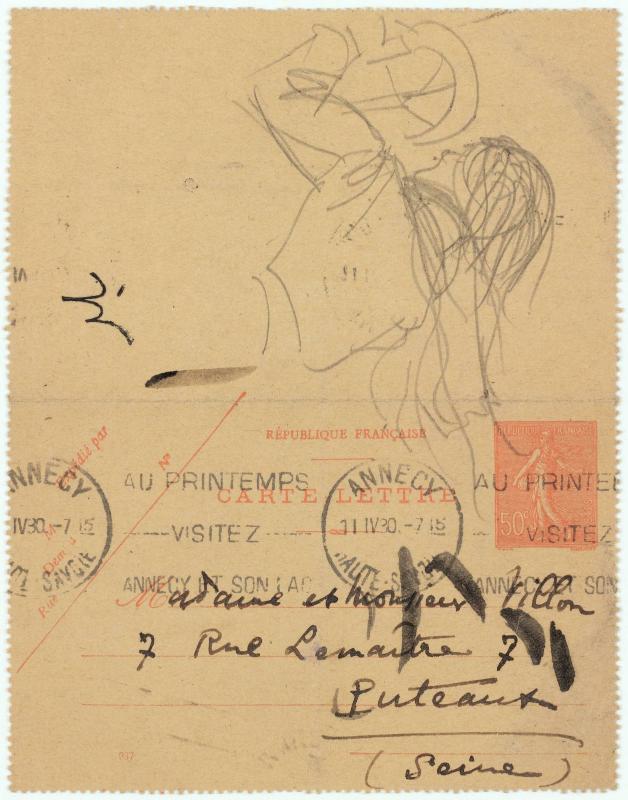 RÉPUBLIQUE FRANÇAISE
CARTE LETTRE
RÉPUBLIQUE FRANÇAISE
50c
Expédié par
M
Dem t à
Rue
N°
ANNECY
IV30.-7 15
SAVOIE
AU PRINTEMPS
VISITEZ
ANNECY ET SON LAC
ANNECY
11 IV30.-7 15
HAUTE-SAVOIE
AU PRINTE
VISITEZ
ANNECY ET SON
Madame et Monsieur Villon
7 Rue Lemaître 7
Puteaux
(Seine)
937